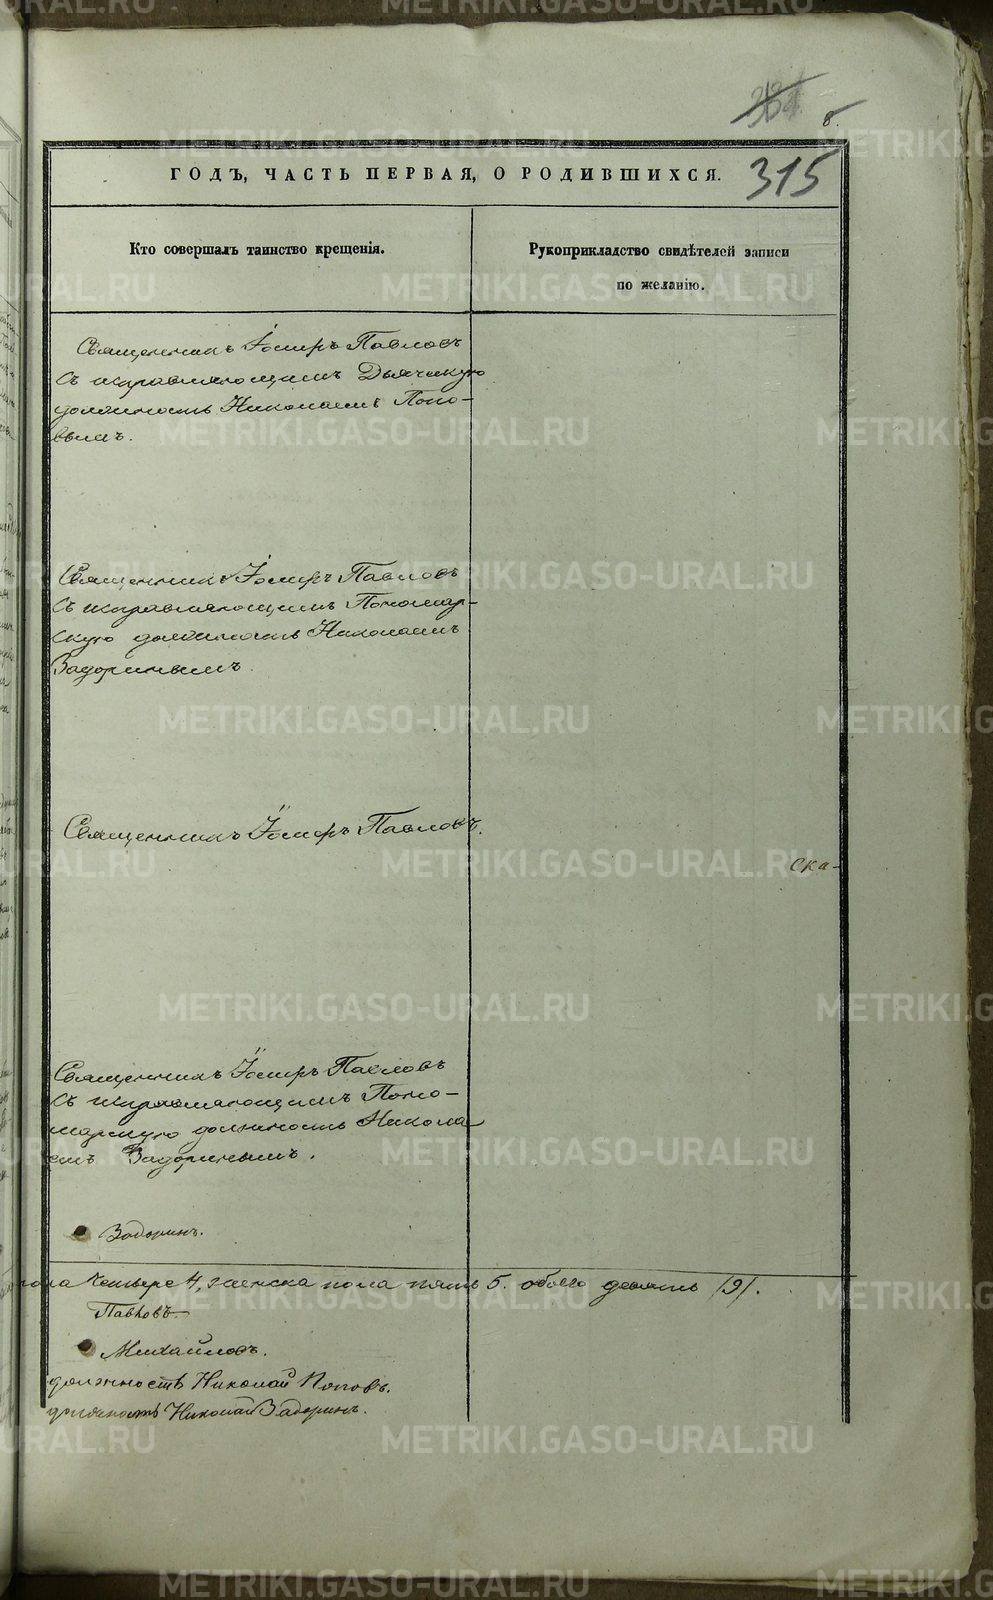 8.
315
ГОДЪ, ЧАСТЬ ПЕРВАЯ, О РОДИВШИХСЯ.
Кто совершалъ таинство крещенія.
Рукоприкладство свидѣтелей записи
по желанію.
Священникъ Іосифъ Павловъ
съ исправляющимъ Дьячкую
должность Николаемъ Попо-
вымъ.
Священникъ Іосифъ Павловъ
съ исправляющимъ Пономар-
скую должность Николаемъ
Задоринымъ.
Священникъ Іосифъ Павловъ.
ска-
Священникъ Іосифъ Павловъ
съ исправляющимъ Поно-
марскую должность Никола-
емъ Задоринымъ.
Задоринъ.
пола четыре 4, женска пола пять 5. обоего девять /9/.
Павловъ
Михайловъ.
должность Николай Поповъ.
должность Николай Задоринъ.
METRIKI.GASO-URAL.RU